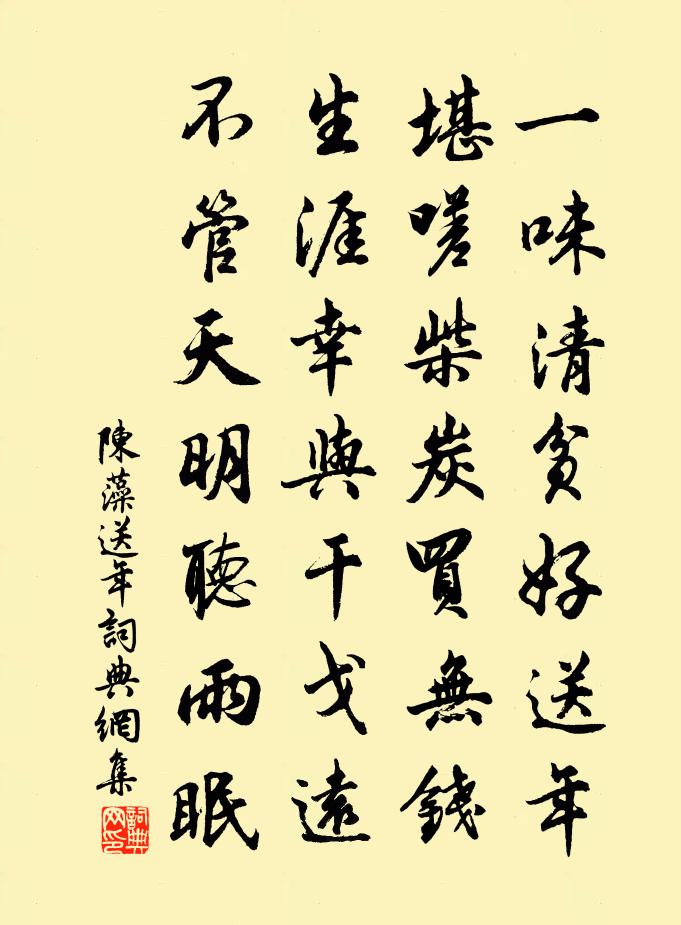 一味清貧好送年
堪嗟柴炭買無錢
生涯幸與干戈遠
不管天明聽雨眠
陳藻送年詞典網集
詞典网印